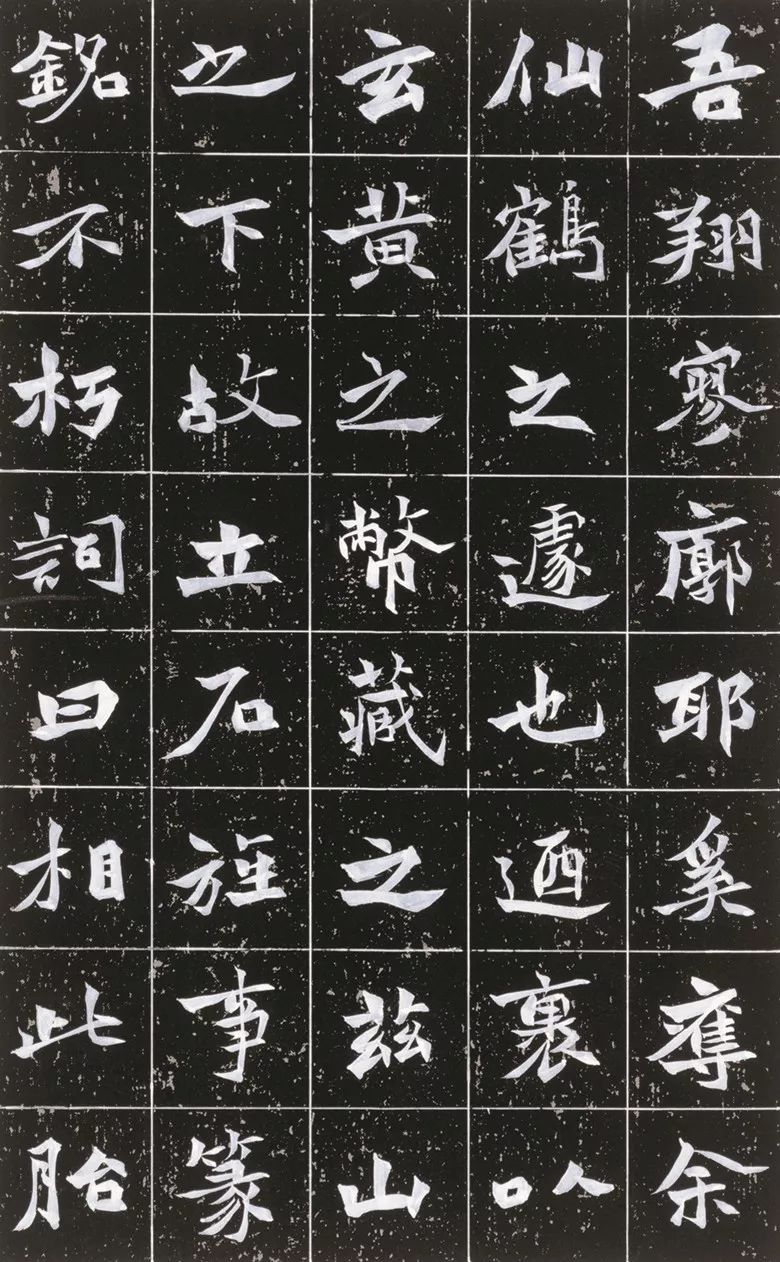 吾翔寥廓耶奚奪余
仙鶴之遽也迺裹㕥
玄黄之幣藏之茲山
之下故立石旌事篆
銘不朽詞曰相此胎